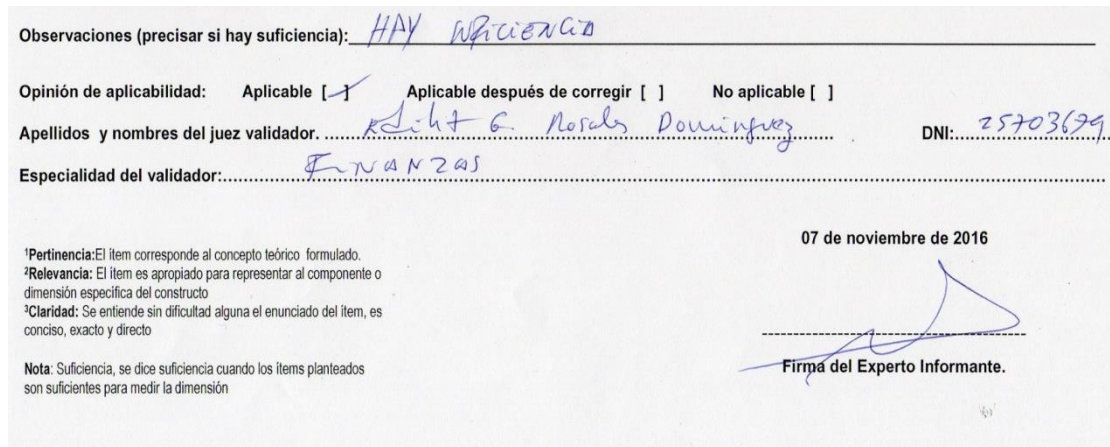 Observaciones (precisar si hay suficiencia): HAY SUFICIENCIA
Opinión de aplicabilidad: Aplicable [✓] Aplicable después de corregir [ ] No aplicable [ ]
Apellidos y nombres del juez validador. G. Rosales Dominguez DNI: 25703679
Especialidad del validador: FINANZAS
07 de noviembre de 2016
¹Pertinencia:El ítem corresponde al concepto teórico formulado.
²Relevancia: El ítem es apropiado para representar al componente o
dimensión específica del constructo
³Claridad: Se entiende sin dificultad alguna el enunciado del ítem, es
conciso, exacto y directo
Nota: Suficiencia, se dice suficiencia cuando los ítems planteados
son suficientes para medir la dimensión
Firma del Experto Informante.